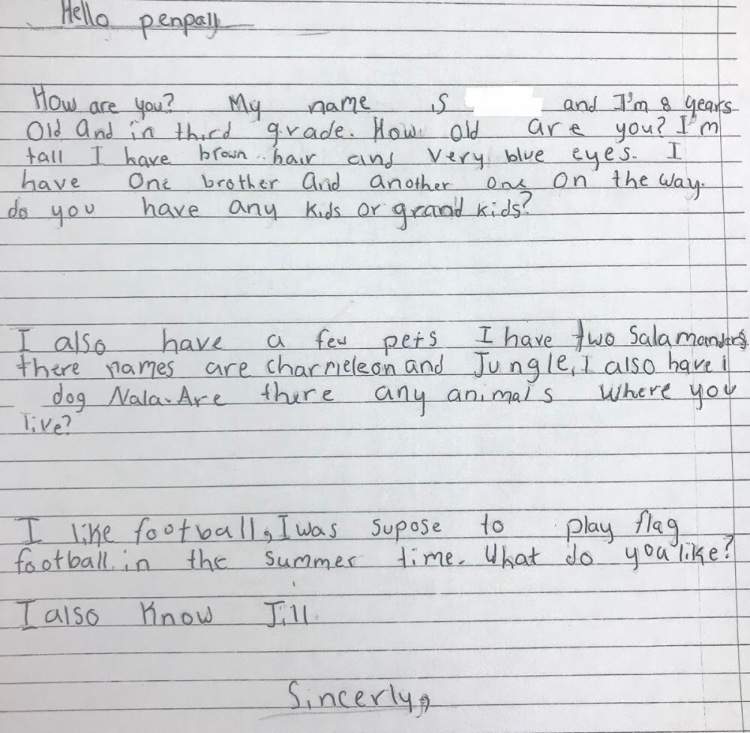 Hello penpall
How are you? My name is and I'm 8 years
Old and in third grade. How old are you? I'm
tall I have brown hair and very blue eyes. I
have One brother And another one On the way.
do you have any kids or grand kids?
I also have a few pets I have two Salamanders
there names are charmeleon and Jungle, I also have 1
dog Nala. Are there any animals Where you
live?
I like football, I was supose to play flag
football in the summer time. What do you like?
I also Know Jill
Sincerly,